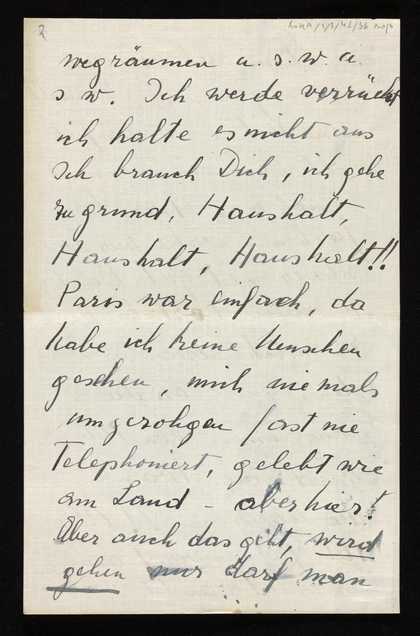 2
wegräumen u. s. w. u.
s w. Ich werde verrückt
ich halte es nicht aus
Ich brauch Dich, ich gehe
zu grund. Haushalt,
Haushalt, Haushalt!!
Paris war einfach, da
habe ich keine Menschen
gesehen, mich niemals
umgezohgen fast nie
Telephoniert, gelebt wie
am Land - aber hier!
Aber auch das geht, wird
gehen nur darf man